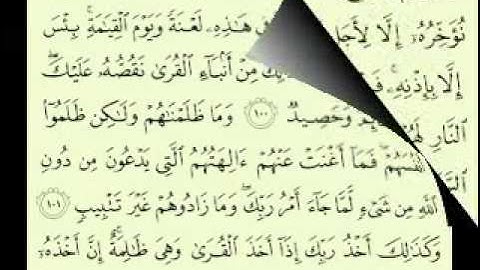 نُؤَخِّرُهُۥٓ إِلَّا لِأَجَلٍ فِى هَـٰذِهِۦ لَعْنَةً وَيَوْمَ ٱلْقِيَـٰمَةِ بِئْسَ
إِلَّا بِإِذْنِهِۦ مِنْ أَنۢبَآءِ ٱلْقُرَىٰ نَقُصُّهُۥ عَلَيْكَ
ٱلنَّارِ لَهُمْ وَحَصِيدٌ ١٠٠ وَمَا ظَلَمْنَـٰهُمْ وَلَـٰكِن ظَلَمُوٓا۟
أَنفُسَهُمْ فَمَآ أَغْنَتْ عَنْهُمْ ءَالِهَتُهُمُ ٱلَّتِى يَدْعُونَ مِن دُونِ
ٱللَّهِ مِن شَىْءٍ لَّمَّا جَآءَ أَمْرُ رَبِّكَ وَمَا زَادُوهُمْ غَيْرَ تَتْبِيبٍ ١٠١
وَكَذَٰلِكَ أَخْذُ رَبِّكَ إِذَآ أَخَذَ ٱلْقُرَىٰ وَهِىَ ظَـٰلِمَةٌ إِنَّ أَخْذَهُۥٓ